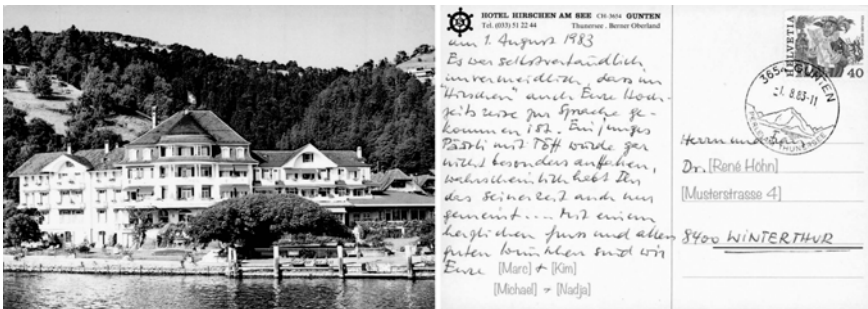 HOTEL HIRSCHEN AM SEE CH-3654 GUNTEN
Tel. (033) 51 22 44 Thunersee . Berner Oberland
am 1. August 1983
Es war selbstverständlich
unvermeidlich, dass im
"Hirschen" auch Eure Hoch-
zeitsreise zur Sprache ge-
kommen ist. Ein junges
Päärli mit Töff würde gar
nicht besonders auffallen,
wahrscheinlich habt Ihr
das seinerzeit auch nur
gemeint... Mit einem
herzlichen Gruss und allen
guten Wünschen sind wir
Eure [Marc] + [Kim]
[Michael] + [Nadja]
HELVETIA
40
3654 GUNTEN
-1. 8. 83-11
THUNERSEE
Herrn und Frau
Dr. [René Höhn]
[Musterstrasse 4]
8400 WINTERTHUR